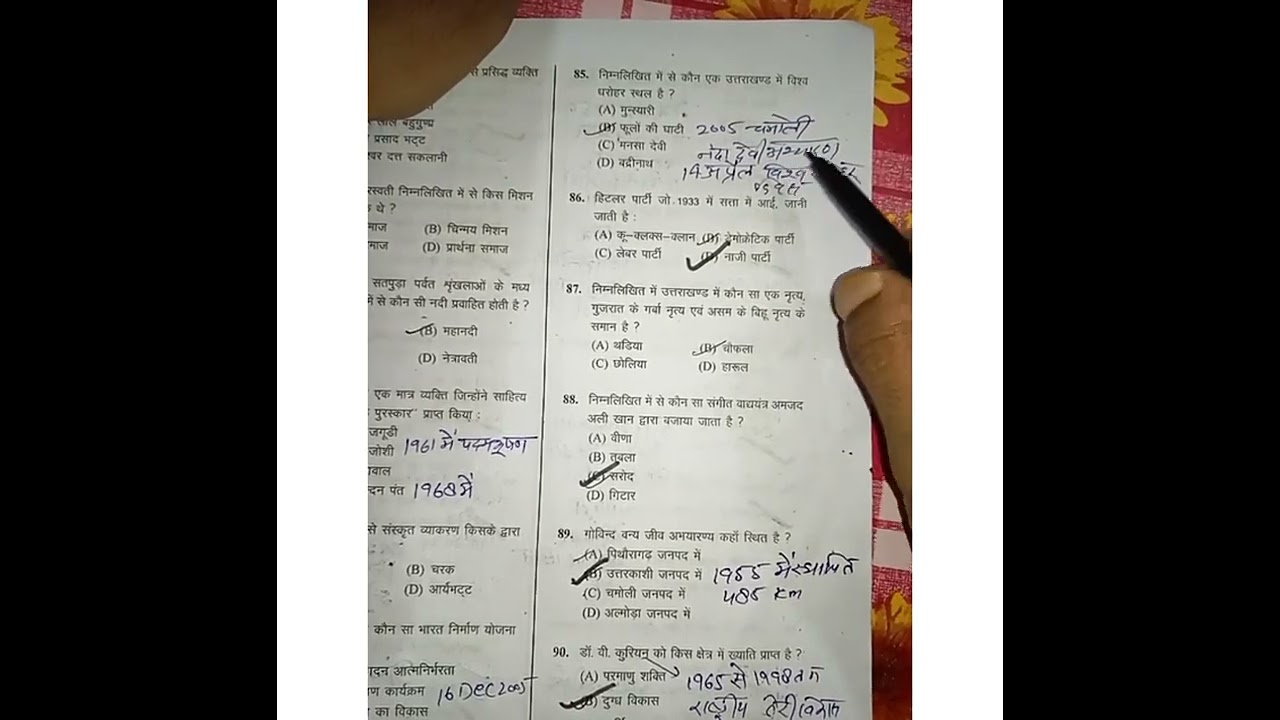 से प्रसिद्ध व्यक्ति
बहुगुणा
प्रसाद भट्ट
दत्त सकलानी
निम्नलिखित में से किस मिशन
थे ?
माज (B) चिन्मय मिशन
माज (D) प्रार्थना समाज
सतपुड़ा पर्वत शृंखलाओं के मध्य
में से कौन सी नदी प्रवाहित होती है ?
(B) महानदी
(D) नेत्रावती
एक मात्र व्यक्ति जिन्होंने साहित्य
पुरस्कार" प्राप्त किया :
जगूडी
जोशी 1961 में
वाल
पंत 1968 में
से संस्कृत व्याकरण किसके द्वारा
(B) चरक
(D) आर्यभट्ट
कौन सा भारत निर्माण योजना
आत्मनिर्भरता
कार्यक्रम 16 Dec 2005
का विकास
85. निम्नलिखित में से कौन एक उत्तराखण्ड में विश्व
धरोहर स्थल है ?
(A) मुन्स्यारी
(B) फूलों की घाटी 2005 - चमोली
(C) मनसा देवी नंदा देवी
(D) बद्रीनाथ 14 अप्रैल विश्व
86. हिटलर पार्टी जो 1933 में सत्ता में आई, जानी
जाती है :
(A) कू-क्लक्स-क्लान (B) डेमोक्रेटिक पार्टी
(C) लेबर पार्टी (D) नाजी पार्टी
87. निम्नलिखित में उत्तराखण्ड में कौन सा एक नृत्य,
गुजरात के गर्बा नृत्य एवं असम के बिहू नृत्य के
समान है ?
(A) थडिया (B) चौफला
(C) छोलिया (D) हारूल
88. निम्नलिखित में से कौन सा संगीत वाद्ययंत्र अमजद
अली खान द्वारा बजाया जाता है ?
(A) वीणा
(B) तबला
(C) सरोद
(D) गिटार
89. गोविन्द वन्य जीव अभयारण्य कहाँ स्थित है ?
(A) पिथौरागढ़ जनपद में
(B) उत्तरकाशी जनपद में 1955 में स्थापित
(C) चमोली जनपद में 485 km
(D) अल्मोड़ा जनपद में
90. डॉ. वी. कुरियन को किस क्षेत्र में ख्याति प्राप्त है ?
(A) परमाणु शक्ति 1965 से 1998 तक
(B) दुग्ध विकास राष्ट्रीय डेरी विकास